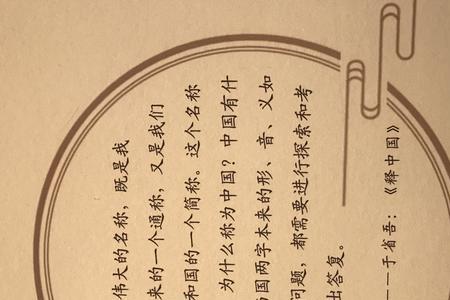 伟大的名称，既是我
来的一个通称，又是我们
和国的一个简称。这个名称
为什么称为中国？中国有什
国两字本来的形、音、义如
问题，都需要进行探索和考
出答复。
——于省吾：《释中国》